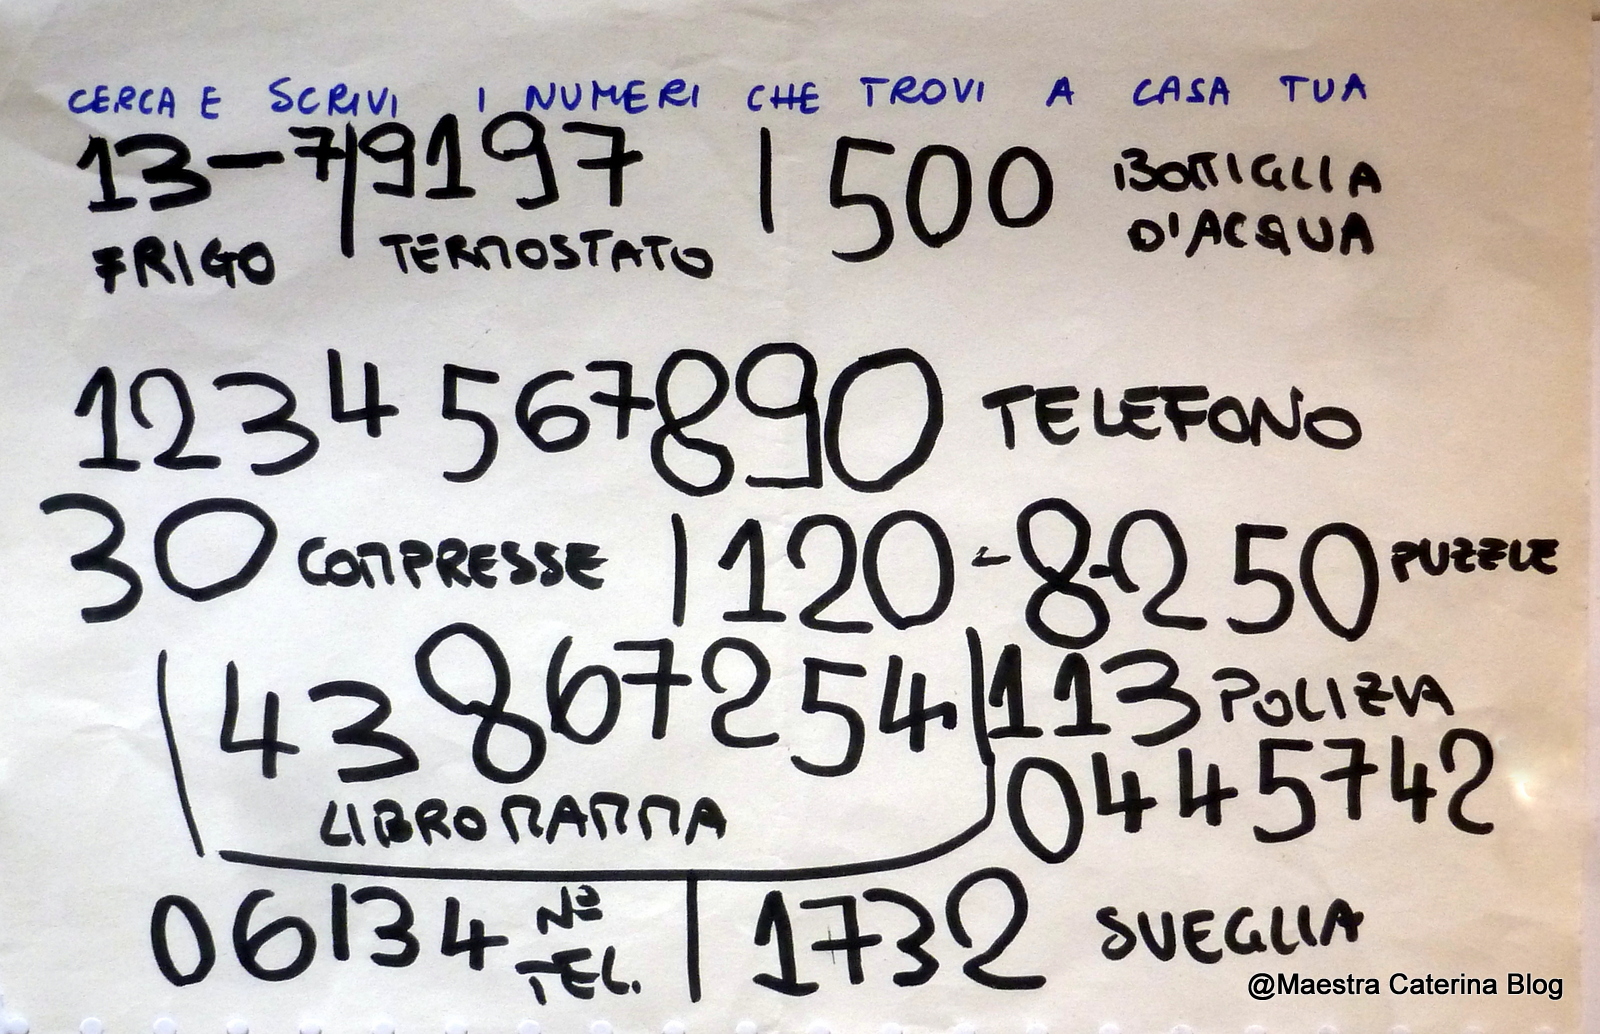 CERCA E SCRIVI I NUMERI CHE TROVI A CASA TUA
13-7|9197 | 500 BOTTIGLIA
FRIGO TERMOSTATO D'ACQUA
1234567890 TELEFONO
30 COMPRESSE | 120-8-250 PUZZLE
43867254 113 POLIZIA
LIBRO MAMMA 0445742
06134 N° TEL. | 1732 SVEGLIA
@Maestra Caterina Blog